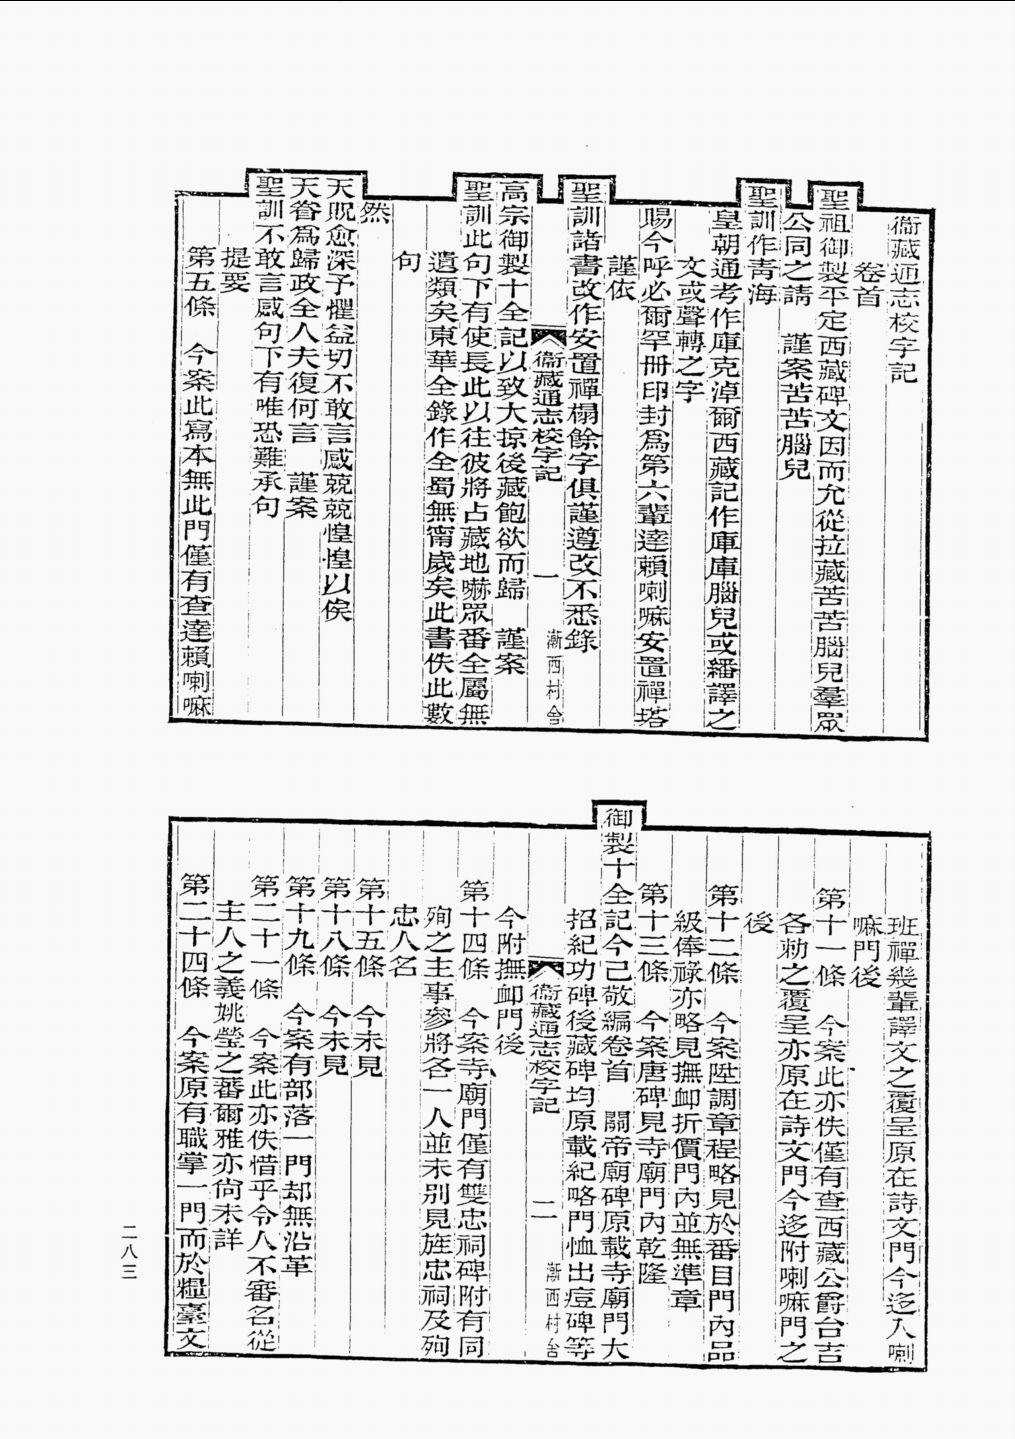 衞藏通志校字記
卷首
聖祖御製平定西藏碑文因而允從拉藏苦苦腦兒羣眾
公同之請　謹案苦苦腦兒
聖訓作青海
皇朝通考作庫克淖爾西藏記作庫庫腦兒或繙譯之
文或聲轉之字
賜今呼必爾罕冊印封爲第六輩達賴喇嘛安置禪塔
謹依
聖訓諸書改作安置禪榻餘字俱謹遵改不悉錄
衞藏通志校字記　一　漸西村舍
高宗御製十全記以致大掠後藏飽欲而歸　謹案
聖訓此句下有使長此以往彼將占藏地嚇眾番全屬無
遺類矣東華全錄作全蜀無甯歲矣此書佚此數
句
然
天貺愈深予懼益切不敢言感兢兢惶惶以俟
天眷爲歸政全人夫復何言　謹案
聖訓不敢言感句下有唯恐難承句
提要
第五條　今案此寫本無此門僅有查達賴喇嘛
班禪幾輩譯文之覆呈原在詩文門今迻入喇
嘛門後
第十一條　今案此亦佚僅有查西藏公爵台吉
各勑之覆呈亦原在詩文門今迻附喇嘛門之
後
第十二條　今案陞調章程略見於番目門內品
級俸祿亦略見撫卹折價門內並無準章
第十三條　今案唐碑見寺廟門內乾隆
御製十全記今己敬編卷首　關帝廟碑原載寺廟門大
招紀功碑後藏碑均原載紀略門恤出痘碑等
衞藏通志校字記　二　漸西村舍
今附撫卹門後
第十四條　今案寺廟門僅有雙忠祠碑附有同
殉之主事參將各一人並未別見旌忠祠及殉
忠人名
第十五條　今未見
第十八條　今未見
第十九條　今案有部落一門却無沿革
第二十一條　今案此亦佚惜乎令人不審名從
主人之義姚瑩之蕃爾雅亦尙未詳
第二十四條　今案原有職掌一門而於糧臺文
二八三